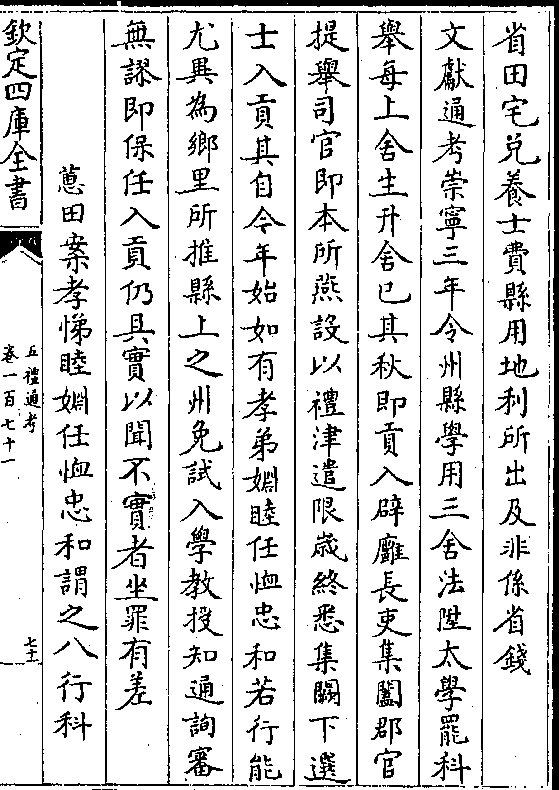 省田宅兑養士費縣用地利所出及非係省錢
文獻通考崇寧三年令州縣學用三舍法陞太學罷科
舉每上舍生升舍已其秋即貢入辟廱長吏集闔郡官
提舉司官即本所燕設以禮津遣限歲終悉集闕下選
士入貢其自今年始如有孝弟婣睦任恤忠和若行能
尤異為鄉里所推縣上之州免試入學教授知通詢審
無謬即保任入貢仍具實以聞不實者坐罪有差
蕙田案孝悌睦婣任恤忠和謂之八行科
欽定四庫全書
五禮通考
卷一百七十一
七十